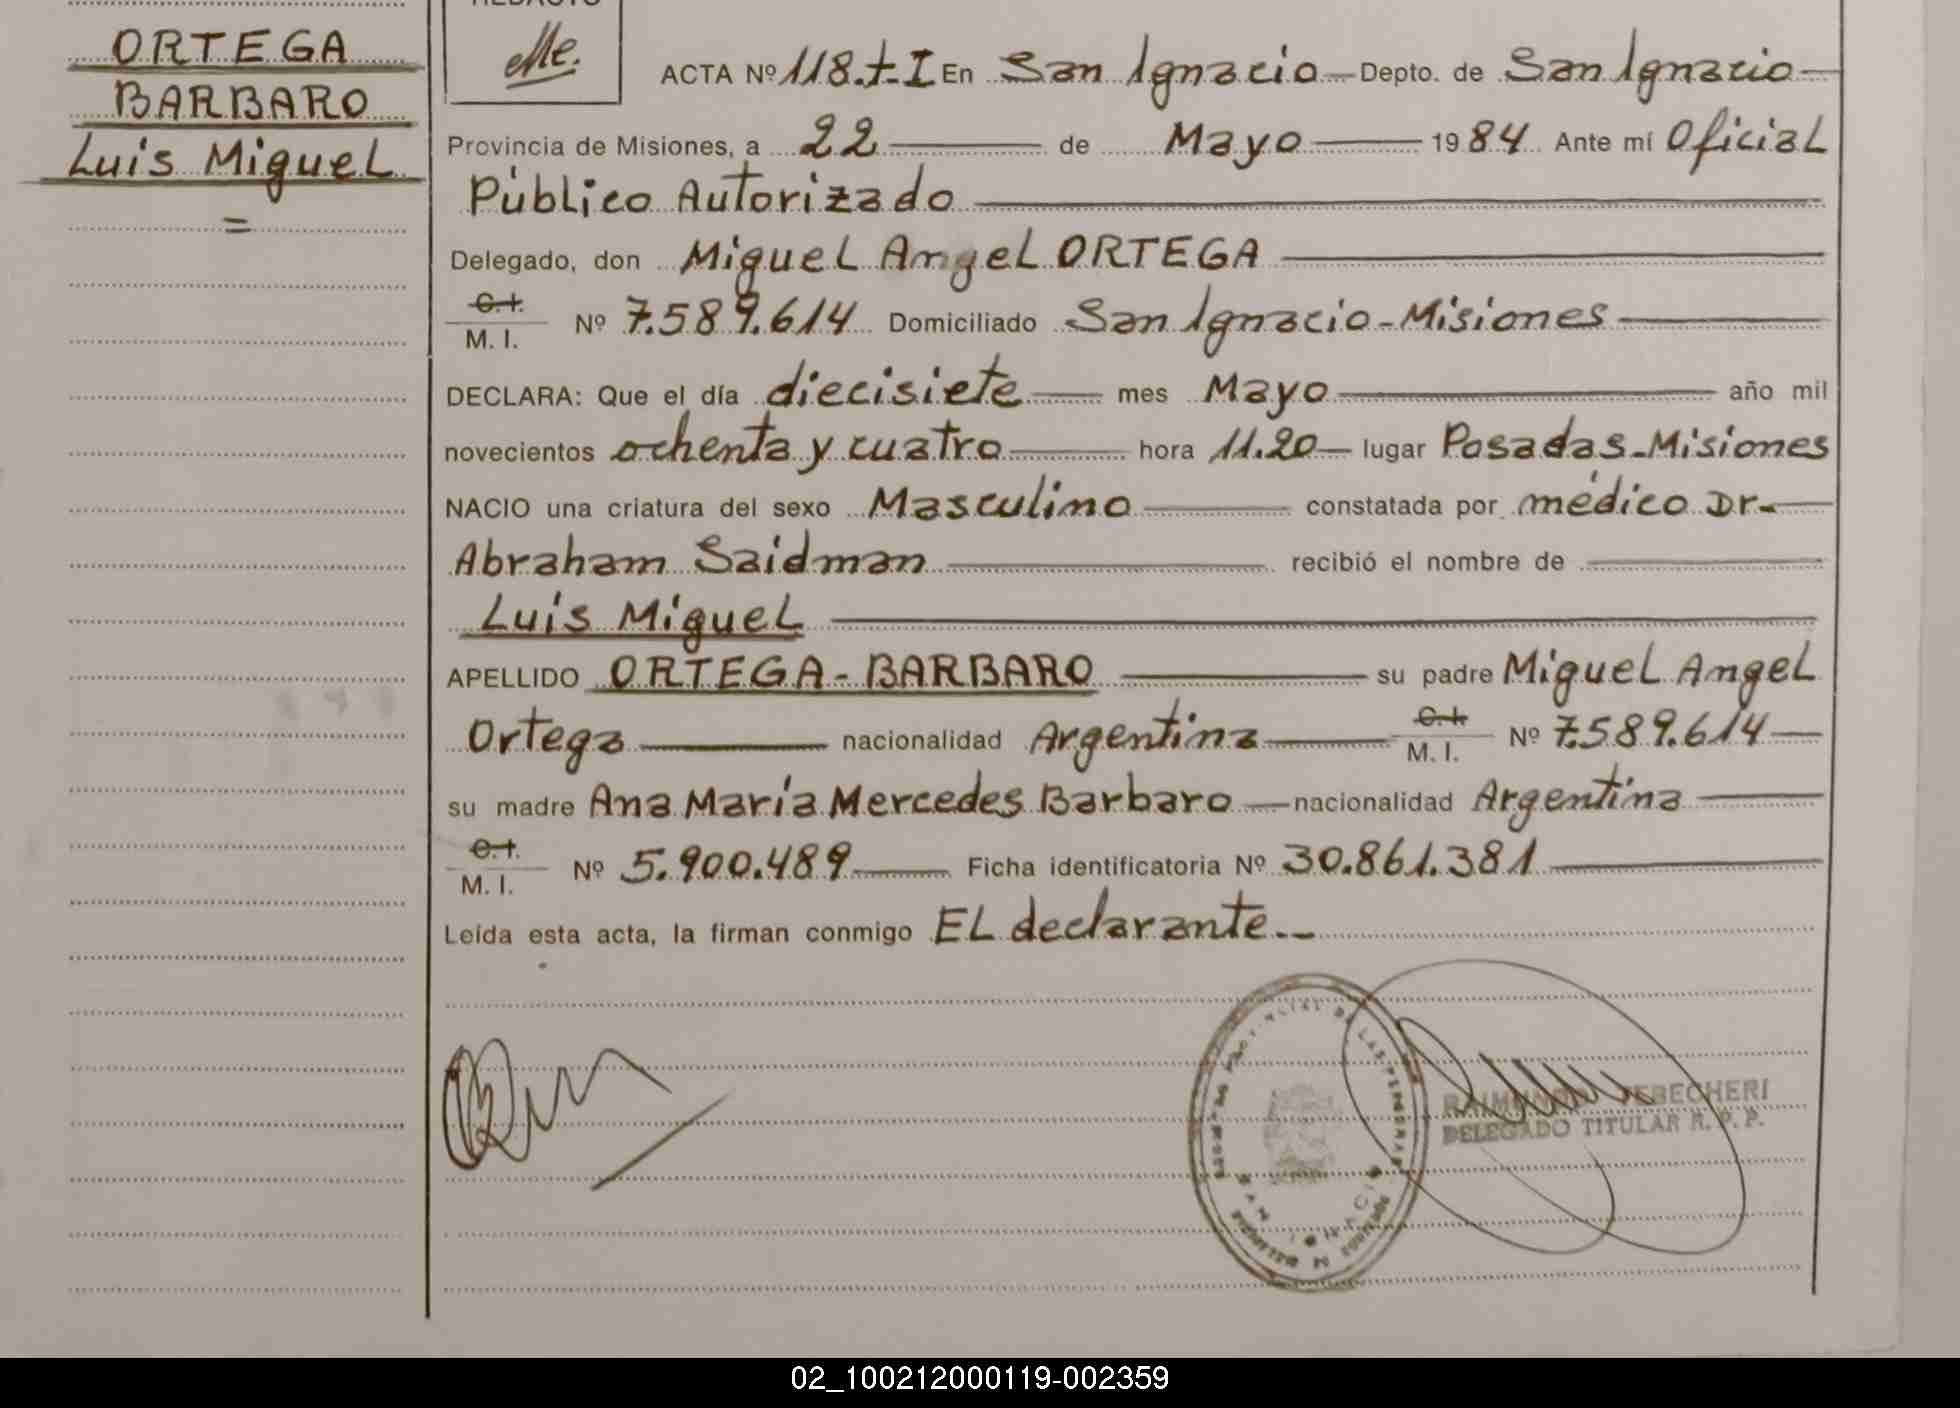 ORTEGA
BARBARO
Luis Miguel
=
REDACTO
ACTA Nº 118.t-I En San Ignacio Depto. de San Ignacio
Provincia de Misiones, a 22 de Mayo 1984 Ante mí Oficial
Público Autorizado
Delegado, don Miguel Angel ORTEGA
C.I.
M. I. Nº 7.589.614 Domiciliado San Ignacio - Misiones
DECLARA: Que el día diecisiete mes Mayo año mil
novecientos ochenta y cuatro hora 11.20 lugar Posadas-Misiones
NACIO una criatura del sexo Masculino constatada por médico Dr.
Abraham Saidman recibió el nombre de
Luis Miguel
APELLIDO ORTEGA-BARBARO su padre Miguel Angel
Ortega nacionalidad Argentina C.I. M. I. Nº 7.589.614
su madre Ana María Mercedes Barbaro nacionalidad Argentina
C.I.
M. I. Nº 5.900.489 Ficha identificatoria Nº 30.861.381
Leída esta acta, la firman conmigo EL declarante.
PROVINCIAL DE LAS PERSONAS
SAN IGNACIO
DELEGADO TITULAR R. P. P.
02_100212000119-002359